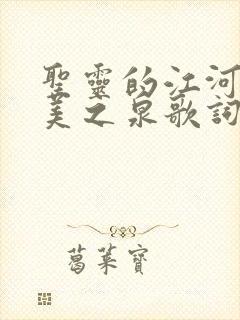 聖靈的江河
美之泉歌詞
葛萊寶